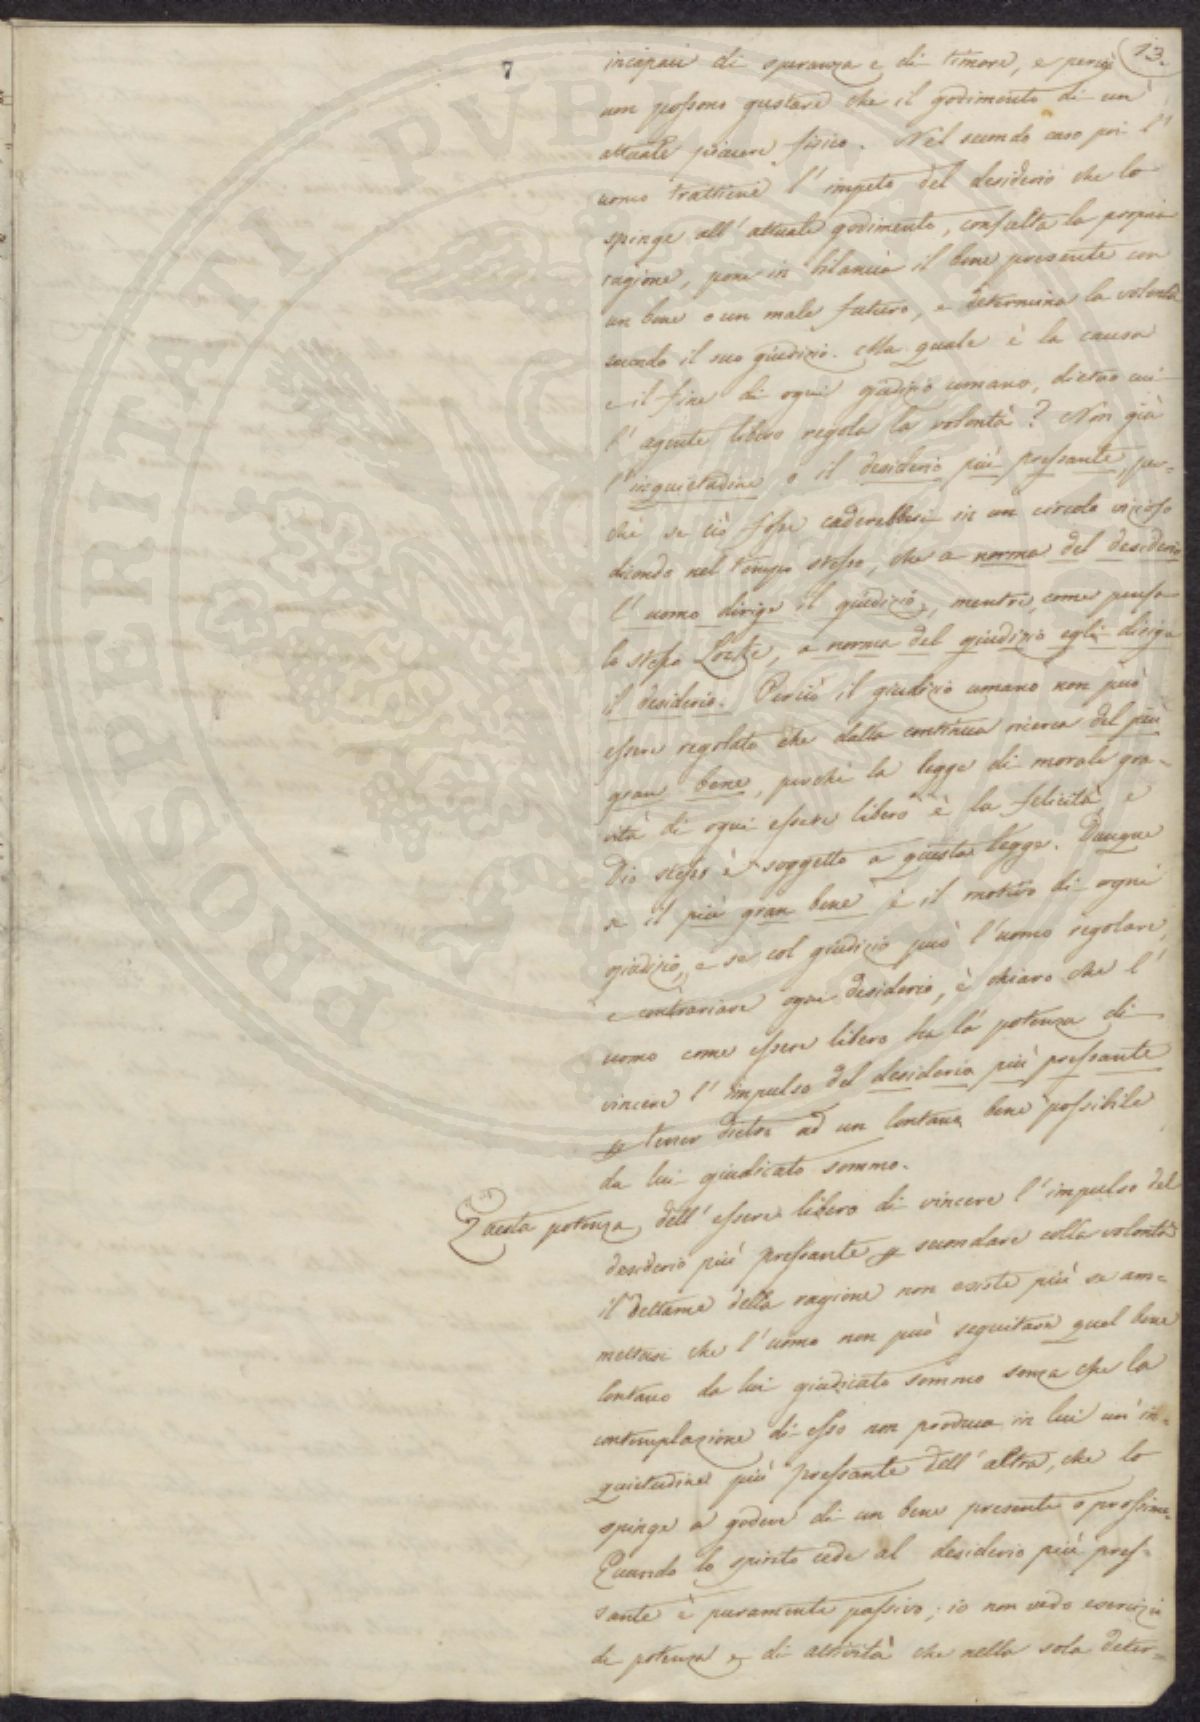 7
13.
incapaci di speranza e di timore, e perciò
non possono gustare che il godimento di un'
attuale piacere fisico. Nel secondo caso poi l'
uomo trattiene l'impeto del desiderio che lo
spinge all'attuale godimento, consulta la propria
ragione, pone in bilancia il bene presente con
un bene o un male futuro, e determina la volontà
secondo il suo giudizio. Ma quale è la causa
e il fine di ogni giudizio umano, dietro cui
l'agente libero regola la volontà? Non già
l'inquietudine o il desiderio più pressante, per-
chè se ciò fosse caderebbesi in un circolo vizioso
dicendo nel tempo stesso, che a norma del desiderio
l'uomo dirige il giudizio, mentre, come pensa
lo stesso Locke, a norma del giudizio egli dirige
il desiderio. Perciò il giudizio umano non può
essere regolato che dalla continua ricerca del più
gran bene, perchè la legge di morale gra-
vità di ogni essere libero è la felicità, e
Dio stesso è soggetto a questa legge. Dunque
se il più gran bene è il motivo di ogni
giudizio, e se col giudizio può l'uomo regolare,
e contrariare ogni desiderio, è chiaro che l'
uomo come essere libero ha la potenza di
vincere l'impulso del desiderio più pressante
tener dietro ad un lontano bene possibile
da lui giudicato sommo.
Questa potenza dell'essere libero di vincere l'impulso del
desiderio più pressante secondare colla volontà
il dettame della ragione non esiste più se am-
mettasi che l'uomo non può seguitare quel bene
lontano da lui giudicato sommo senza che la
contemplazione di esso non produca in lui un'in-
quietudine più pressante dell'altra, che lo
spinge a godere di un bene presente o prossimo.
Quando lo spirito cede al desiderio più pres-
sante è puramente passivo; io non vedo esercizio
di potenza e di attività che nella sola deter-
PROSPERITATI PVBLICAE